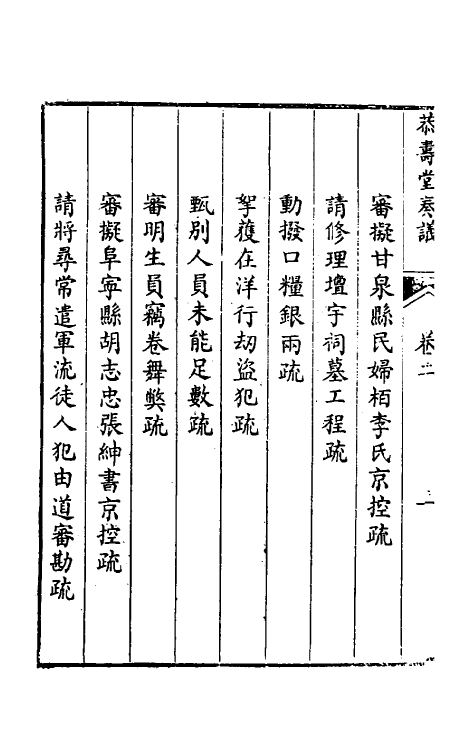 恭壽堂奏議
卷二
審擬甘泉縣民婦栢李氏京控疏
請修理壇宇祠墓工程疏
動撥口糧銀兩疏
拏獲在洋行刼盜犯疏
甄別人員未能足數疏
審明生員竊卷舞弊疏
審擬阜寧縣胡志忠張紳書京控疏
請將尋常遣軍流徒人犯由道審勘疏